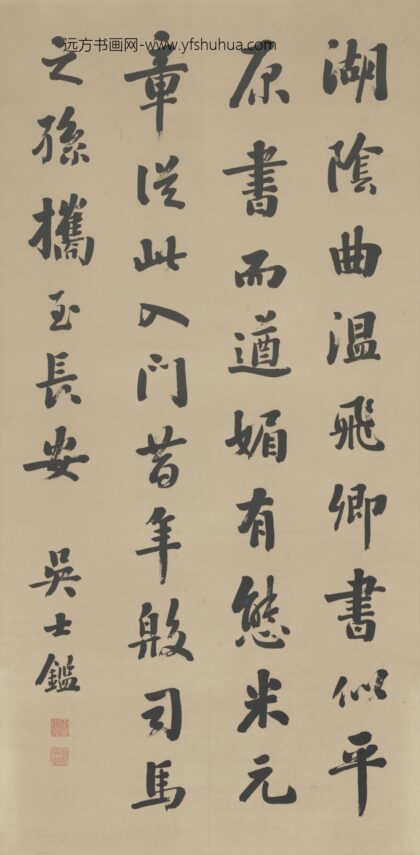 远方书画网-www.yfshuhua.com
湖陰曲温飛卿書似平
原書而遒媚有態米元
章從此入門昔年殷司馬
之孫攜至長安
吳士鑑